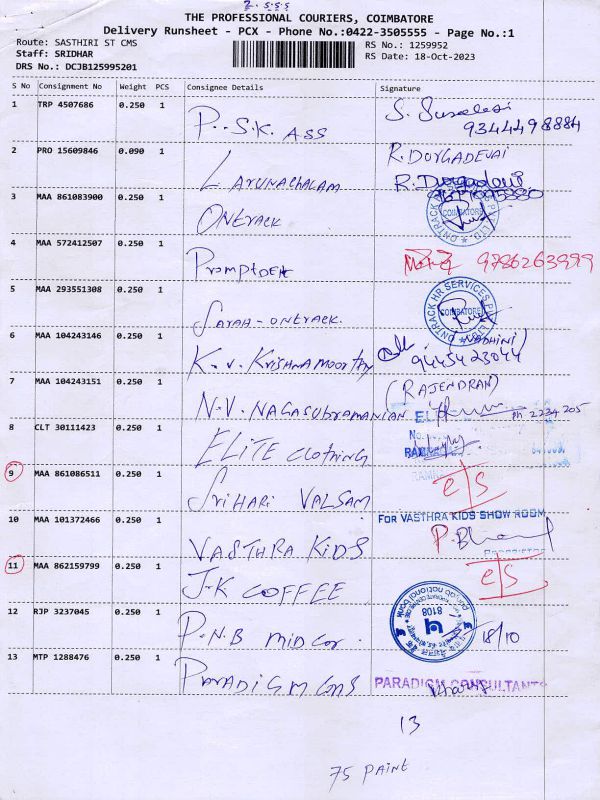 2.5.5.5
THE PROFESSIONAL COURIERS, COIMBATORE
Delivery Runsheet - PCX - Phone No.:0422-3505555 - Page No.:1
Route: SASTHIRI ST CMS
RS No.: 1259952
Staff: SRIDHAR
RS Date: 18-Oct-2023
DRS No.: DCJB125995201
S No Consignment No Weight PCS Consignee Details Signature
1 TRP 4507686 0.250 1 P..S.K. ASS
9344498884
2 PRO 15609846 0.090 1 L ARUNACHALAM R. DURGADEVI
R. Durgadevi
3 MAA 861083900 0.250 1 ONTRACK
COIMBATORE
4 MAA 572412507 0.250 1 PROMPTDEA 9786263999
5 MAA 293551308 0.250 1 SARAH-ONTRACK.
ONTRACK HR SERVICES PVT LTD. COIMBATORE
6 MAA 104243146 0.250 1 K.V. KRISHNAMOORTHY 9445423044
7 MAA 104243151 0.250 1 N.V. NAGASUBRAMANIAN (RAJENDRAN)
Ph 2234205
8 CLT 30111423 0.250 1 ELITE CLOTHING
9 MAA 861086511 0.250 1 SRIHARI VALSAM e/s
10 MAA 101372466 0.250 1 VASTHRA KIDS FOR VASTHRA KIDS SHOW ROOM
PROPRIETOR
11 MAA 862159799 0.250 1 J.K COFFEE e/s
12 RJP 3237045 0.250 1 P.N.B MID COR 8108 18/10
13 MTP 1288476 0.250 1 PARADIGM CONS PARADIGM CONSULTANTS
13
75 PAINT